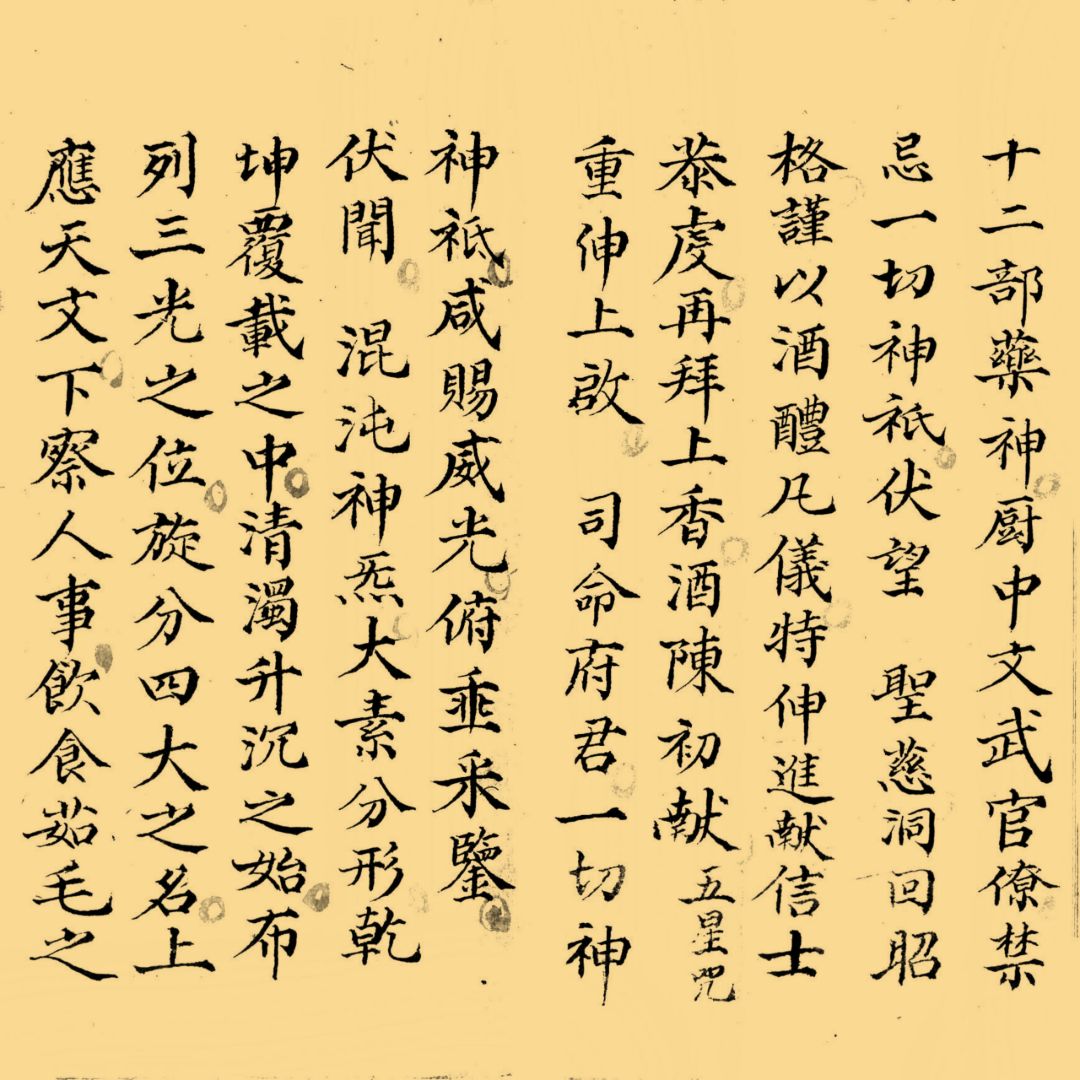 十二部藥神厨中文武官僚禁
忌一切神祇伏望　聖慈洞回昭
格謹以酒醴凡儀特伸進献信士
恭虔再拜上香酒陳初献 五星咒
重伸上啟　司命府君一切神
神祇咸賜威光俯垂采鑒
伏聞　混沌神炁大素分形乾
坤覆載之中清濁升沉之始布
列三光之位旋分四大之名上
應天文下察人事飲食茹毛之